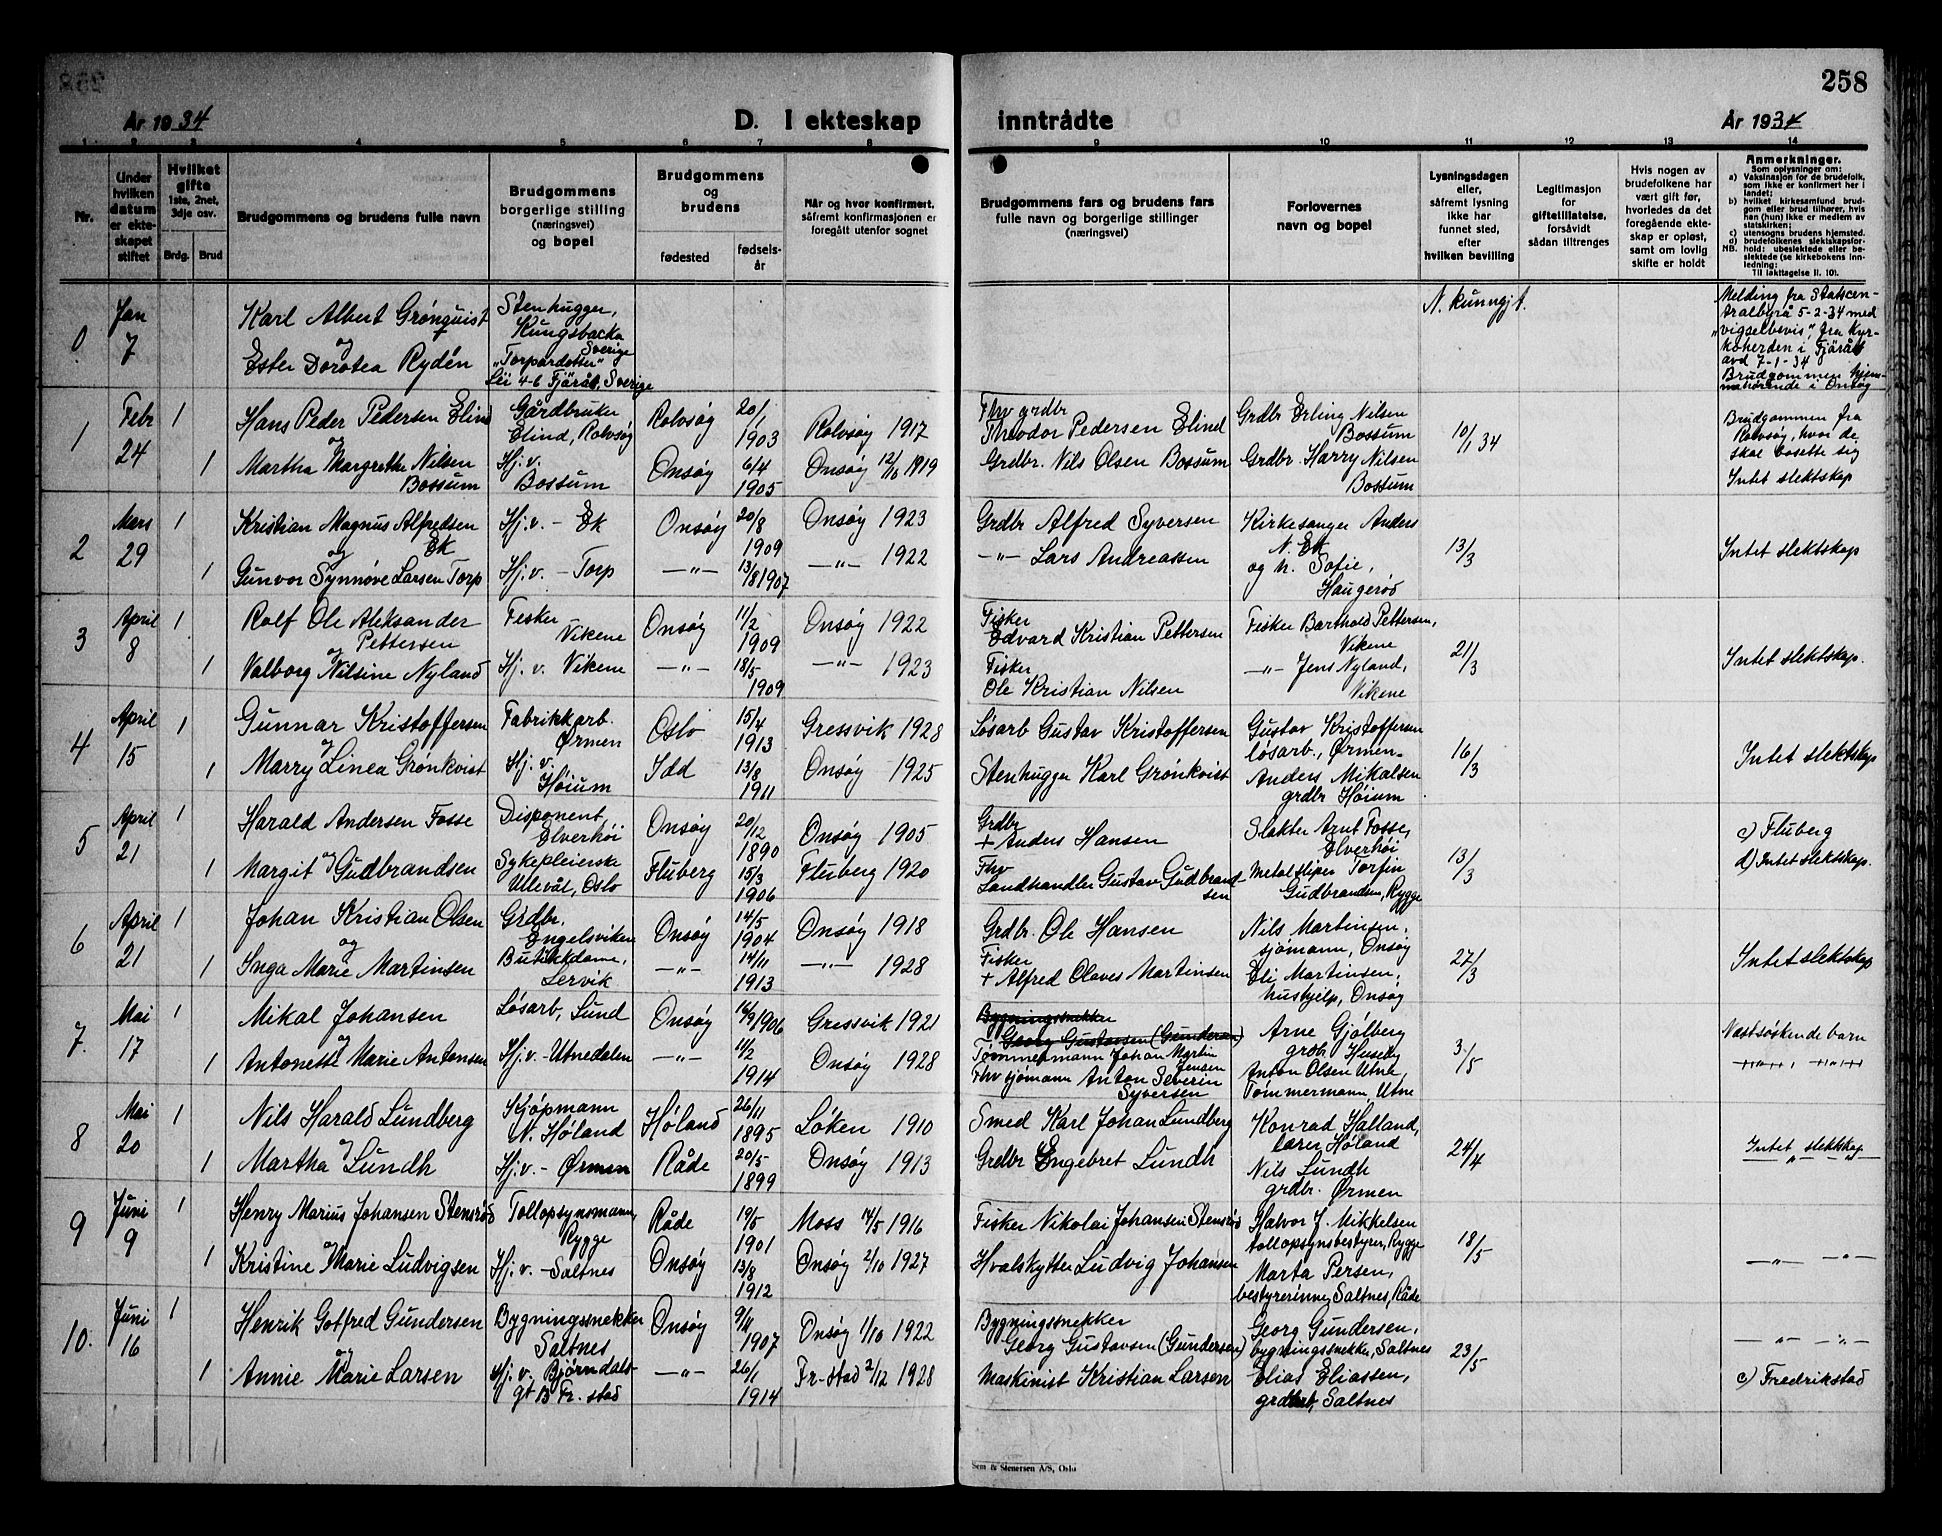 258
År 1934
D. I ekteskap
inntrådte
År 1934
1 2 3 4 5 6 7 8 9 10 11 12 13 14
Nr.
Under
hvilken
datum
er ekte-
skapet
stiftet
Hvilket
gifte
1ste, 2net,
3dje osv.
Brdg. Brud
Brudgommens og brudens fulle navn
Brudgommens
borgerlige stilling
(næringsvei)
og bopel
Brudgommens
og
brudens
fødested
fødsels-
år
Når og hvor konfirmert,
såfremt konfirmasjonen er
foregått utenfor sognet
Brudgommens fars og brudens fars
fulle navn og borgerlige stillinger
(næringsvei)
Forlovernes
navn og bopel
Lysningsdagen
eller,
såfremt lysning
ikke har
funnet sted,
efter
hvilken bevilling
Legitimasjon
for
giftetillatelse,
forsåvidt
sådan tiltrenges
Hvis nogen av
brudefolkene har
vært gift før,
hvorledes da det
foregående ekte-
skap er opløst,
samt om lovlig
skifte er holdt
Anmerkninger.
Som oplysninger om:
a) Vaksinasjon for de brudefolk,
som ikke er konfirmert her i
landet;
b) hvilket kirkesamfund brud-
gom eller brud tilhører, hvis
han (hun) ikke er medlem av
statskirken;
c) utensogns brudens hjemsted.
d) brudefolkenes slektskapsfor-
NB. hold: ubeslektede eller be-
slektede (se kirkebokens inn-
ledning:
Til iakttagelse II. 10).
0
Jan
7
Karl Albert Grönquist
og
Ester Dorotea Rydén
Stenhugger,
Kungsbacka
Sverige
"Torpardotter"
Lii 4-6 Fjärås, Sverige
N. kunngjt.
Melding fra Statscen-
tralbyrå 5-2-34 med
"vigselbevis" fra Kyr-
koherden i Fjärås
avd 7-1-34
Brudgommen hjem-
mehørende i Onsøy
1
Febr
24
1
Hans Peder Pedersen Elind
Gårdbruker
Elind, Rolvsøy
Rolvsøy
20/1
1903
Rolvsøy 1917
Fhv grdbr
Theodor Pedersen Elind
Grdbr Erling Nilsen
Bossum
10/1 34
Brudgommen fra
Rolvsøy, hvor de
skal bosette sig
og
1
Martha Margrethe Nilsen
Bossum
Hj.v.
Bossum
Onsøy
6/4
1905
Onsøy 12/10 1919
Grdbr. Nils Olsen Bossum
Grdbr. Harry Nilsen
Bossum
Intet slektskap
2
Mars
29
1
Kristian Magnus Alfredsen
Ek
Hj.v. - Ek
Onsøy
20/8
1909
Onsøy 1923
Grdbr Alfred Syversen
Kirkesanger Anders
N. Ek
13/3
Intet slektskap
og
1
Gunvor Synnøve Larsen Torp
Hj.v. - Torp
-"-
13/8 1907
-"- 1922
-"- Lars Andreassen
og h. Sofie,
Haugerød
3
April
8
1
Rolf Ole Aleksander
Pettersen
Fisker
Vikene
Onsøy
11/2
1909
Onsøy 1922
Fisker
Edvard Kristian Pettersen
Fisker Barthold Pettersen,
Vikene
21/3
Intet slektskap.
og
1
Valborg Nilsine Nyland
Hj.v. Vikene
-"-
18/5
1909
-"- 1923
Fisker
Ole Kristian Nilsen
-"- Jens Nyland,
Vikene
4
April
15
1
Gunnar Kristoffersen
Fabrikkarb.
Ørmen
Oslo
15/4
1913
Gressvik 1928
Løsarb Gustav Kristoffersen
Gustav Kristoffersen
løsarb., Ørmen.
16/3
Intet slektskap
og
1
Marry Linea Grönkvist
Hj.v.
Høium
Idd
13/8
1911
Onsøy 1925
Stenhugger Karl Grönkvist
Anders Mikalsen
grdbr Høium
5
April
21
1
Harald Andersen Fosse
Disponent,
Elverhøi
Onsøy
20/12
1890
Onsøy 1905
Grdbr
+ Anders Hansen
Slakter Arnt Fosse,
Elverhøi
13/3
c) Fluberg
d) Intet slektskap.
og
1
Margit Gudbrandsen
Sykepleierske
Ullevål, Oslo
Fluberg
15/3
1906
Fluberg 1920
Fhv
Landhandler Gustav Gudbrand
sen
Metalsliper Torfin
Gudbrandsen, Rygge
6
April
21
1
Johan Kristian Olsen
Grdbr.
Engelsviken
Onsøy
14/5
1904
Onsøy 1918
Grdbr. Ole Hansen
Nils Martinsen,
sjømann, Onsøy
27/3
Intet slektskap
og
1
Inga Marie Martinsen
Butikkdame,
Lervik
-"-
14/11
1913
-"- 1928
Fisker
+ Alfred Olaves Martinsen
Eli Martinsen,
hushjelp, Onsøy
7.
Mai
17
1
Mikal Johansen
Løsarb, Lund
Onsøy
16/9 1906
Gressvik 1921
Bygningssnekker
Georg Gustavsen (Gundersen)
Tømmermann Johan Martin
Jensen
Arne Gjølberg
grdb Huseby
3/5
Næstsøskendebarn
og
1
Antonette Marie Antonsen
Hj.v. - Utnedalen
-"-
11/2
1914
Onsøy 1928
Fhv sjømann Anton Severin
Syversen
Anton Olsen Utne,
Tømmermann, Utne
8
Mai
20
1
Nils Harald Lundberg
Kjøpmann
N. Høland
Høland
26/11
1895
Løken 1910
Smed Karl Johan Lundberg
Konrad Halland,
lærer, Høland
24/4
Intet slektskap
og
1
Martha Lundh
Hj.v. - Ørmen
Råde
20/5
1899
Onsøy 1913
Grdbr Engebret Lundh
Nils Lundh
grdbr. Ørmen
9
Juni
9
1
Henry Marius Johansen Stensrød
Tollopsynsmann,
Rygge
Råde
19/5
1901
Moss 14/5 1916
Fisker Nikolai Johansen Stensrød
Halvor J. Mikkelsen
tollopsynsbestyrer, Rygge
18/5
-"- -"-
og
1
Kristine Marie Ludvigsen
Hj.v. - Saltnes
Onsøy
13/8
1912
Onsøy 2/10 1927
Hvalskytter Ludvig Johansen
Marta Persen,
bestyrerinne, Saltnes, Råde
10.
Juni
16
1
Henrik Gotfred Gundersen
Bygningssnekker
Saltnes
Onsøy
9/4
1907
Onsøy 1/10 1922
Bygningssnekker
Georg Gustavsen (Gundersen)
Georg Gundersen,
bygningssnekker, Saltnes
23/5
-"- -"-
og
1
Annie Marie Larsen
Hj.v. Bjørndals-
gt B Fr.stad
-"-
26/1
1914
Fr-stad 2/12 1928
Maskinist Kristian Larsen
Elias Eliassen,
grdbr, Saltnes
c) Fredrikstad
Sem & Stenersen A/S, Oslo